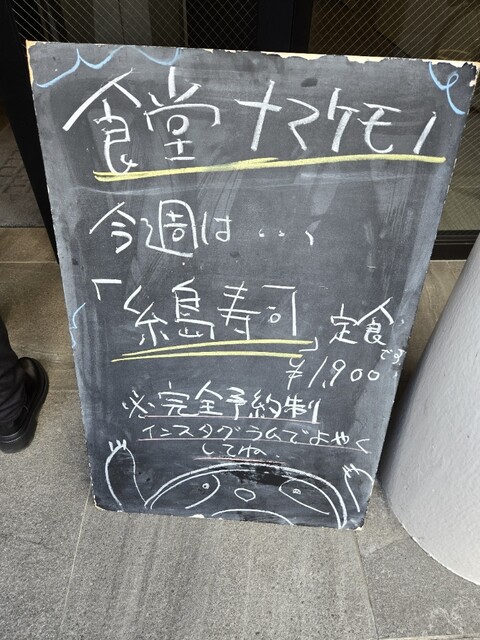 食堂ナマケモノ
今週は...、
「糸島寿司」定食です。
¥1,900
※完全予約制
インスタグラムでよやく
してね。